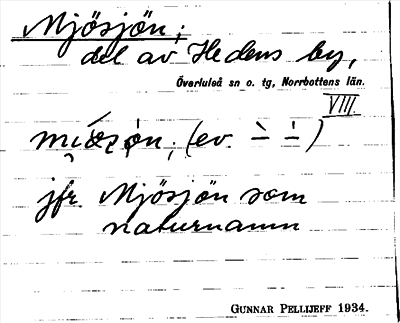 Mjösjön;
del av Hedens by,
Överluleå sn o. tg, Norrbottens län.
VIII.
(ev. ∸ ∸)
jfr. Mjösjön som
naturnamn
GUNNAR PELLIJEFF 1934.